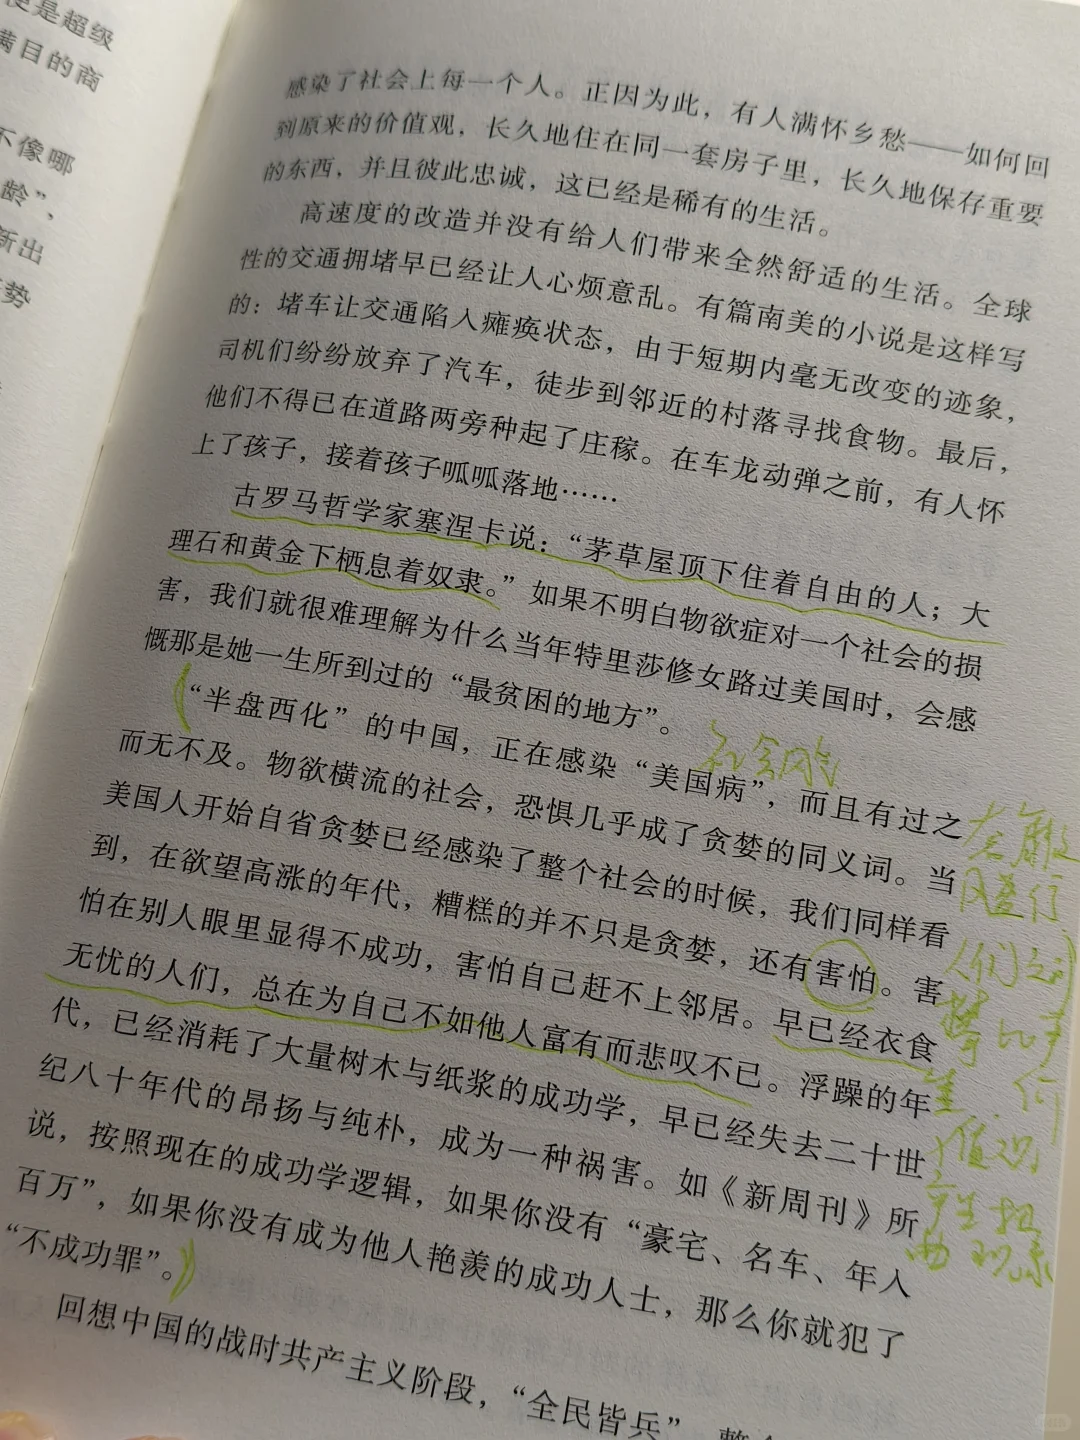 便是超级
满目的商
不像哪
龄”，
新出
势
感染了社会上每一个人。正因为此，有人满怀乡愁——如何回
到原来的价值观，长久地住在同一套房子里，长久地保存重要
的东西，并且彼此忠诚，这已经是稀有的生活。
高速度的改造并没有给人们带来全然舒适的生活。全球
性的交通拥堵早已经让人心烦意乱。有篇南美的小说是这样写
的：堵车让交通陷入瘫痪状态，由于短期内毫无改变的迹象，
司机们纷纷放弃了汽车，徒步到邻近的村落寻找食物。最后，
他们不得已在道路两旁种起了庄稼。在车龙动弹之前，有人怀
上了孩子，接着孩子呱呱落地……
古罗马哲学家塞涅卡说：“茅草屋顶下住着自由的人；大
理石和黄金下栖息着奴隶。”如果不明白物欲症对一个社会的损
害，我们就很难理解为什么当年特里莎修女路过美国时，会感
慨那是她一生所到过的“最贫困的地方”。
“半盘西化”的中国，正在感染“美国病”，而且有过之
而无不及。物欲横流的社会，恐惧几乎成了贪婪的同义词。当
美国人开始自省贪婪已经感染了整个社会的时候，我们同样看
到，在欲望高涨的年代，糟糕的并不只是贪婪，还有害怕。害
怕在别人眼里显得不成功，害怕自己赶不上邻居。早已经衣食
无忧的人们，总在为自己不如他人富有而悲叹不已。浮躁的年
代，已经消耗了大量树木与纸浆的成功学，早已经失去二十世
纪八十年代的昂扬与纯朴，成为一种祸害。如《新周刊》所
说，按照现在的成功学逻辑，如果你没有“豪宅、名车、年入
百万”，如果你没有成为他人艳羡的成功人士，那么你就犯了
“不成功罪”。
回想中国的战时共产主义阶段，“全民皆兵”，
社会风气
风盛行
人们之间
攀比声
价
值观
产生扭
曲现象